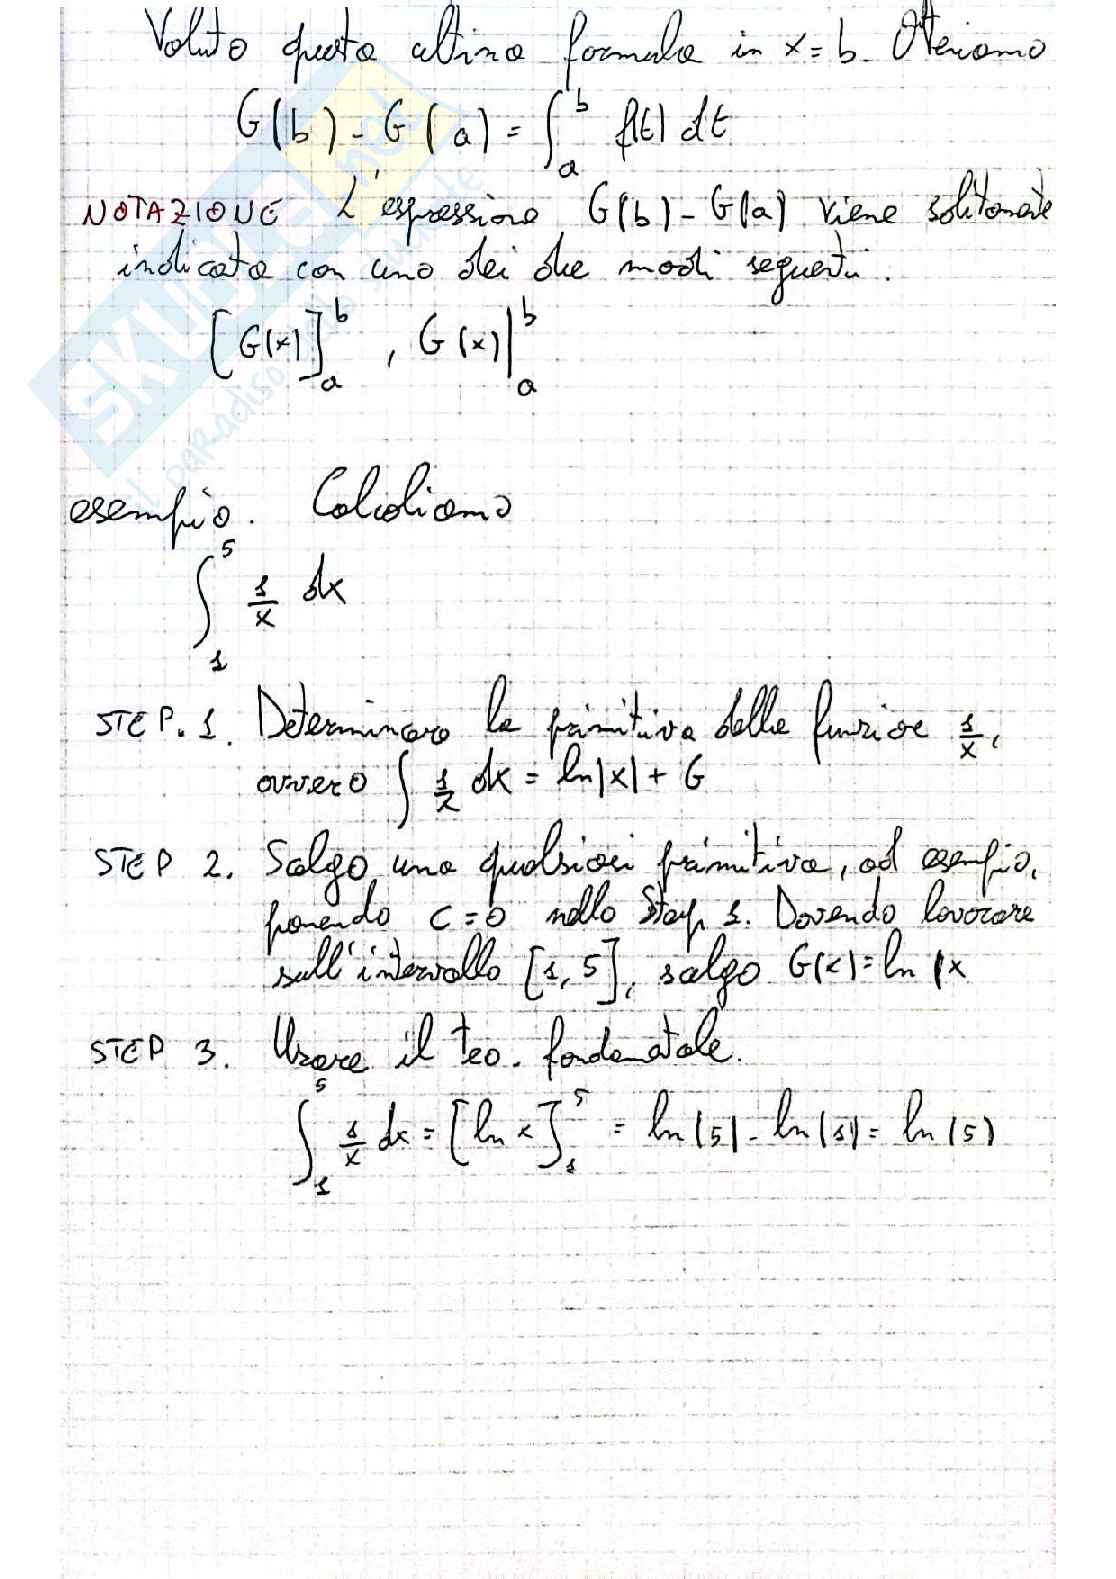 Valuto questa ultima formula in x = b. Otteniamo
G(b) - G(a) = ∫_a^b f(t) dt
NOTAZIONE L'espressione G(b) - G(a) viene solitamente
indicata con uno dei due modi seguenti.
[G(x)]_a^b , G(x)|_a^b
esempio. Calcoliamo
∫_1^5 1/x dx
STEP. 1. Determinare la primitiva della funzione 1/x,
ovvero ∫ 1/x dx = ln|x| + C
STEP 2. Scelgo una qualsiasi primitiva, ad esempio,
ponendo C = 0 nello Step 1. Dovendo lavorare
sull'intervallo [1, 5], scelgo G(x) = ln |x
STEP 3. Usare il teo. fondamentale.
∫_1^5 1/x dx = [ln x]_1^5 = ln(5) - ln(1) = ln(5)
SKUOLA.net
il paradiso dello studente